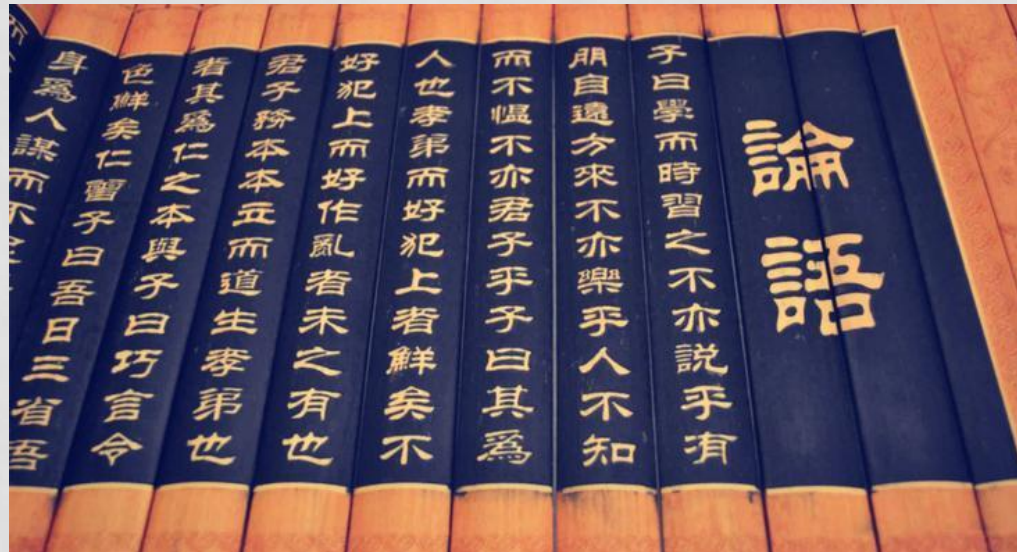 論語
子曰學而時習之不亦説乎有
朋自遠方來不亦樂乎人不知
而不愠不亦君子乎子曰其爲
人也孝弟而好犯上者鮮矣不
好犯上而好作亂者未之有也
君子務本本立而道生孝弟也
者其爲仁之本與子曰巧言令
色鮮矣仁曾子曰吾日三省吾
身爲人謀而不